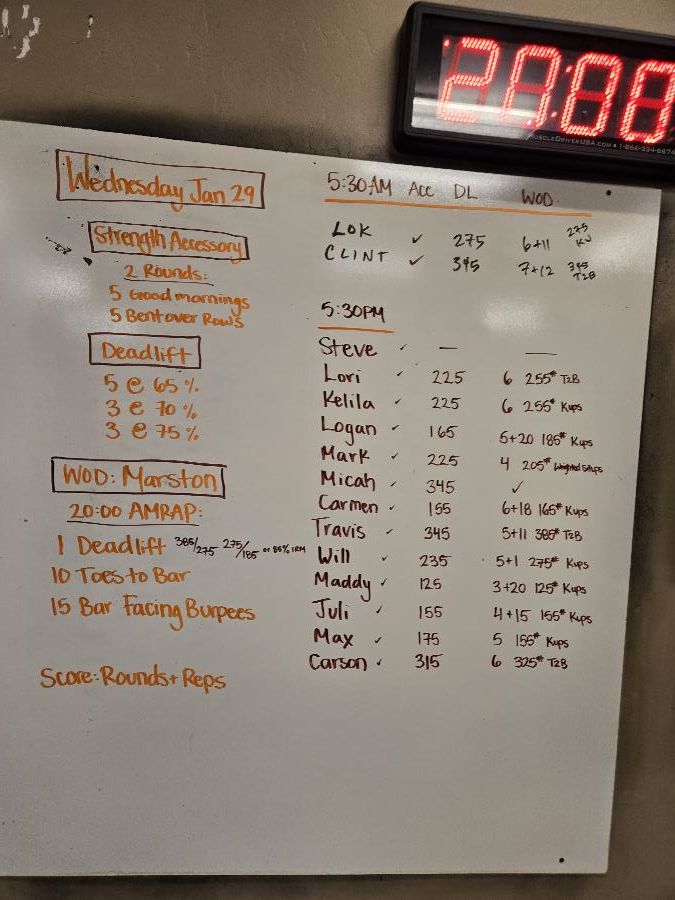 20:00
MUSCLEDRIVERUSA.COM • 1-866-334-6674
Wednesday Jan 29
Strength Accessory
2 Rounds:
5 Good mornings
5 Bent over Rows
Deadlift
5 @ 65%
3 @ 70%
3 @ 75%
WOD: Marston
20:00 AMRAP:
1 Deadlift 385/275 275/185 or 85% 1RM
10 Toes to Bar
15 Bar Facing Burpees
Score: Rounds + Reps
5:30AM Acc DL WOD
LOK ✓ 275 6+11 275 KU
CLINT ✓ 345 7+12 345 T2B
5:30PM
Steve ✓ — —
Lori ✓ 225 6 255# T2B
Kelila ✓ 225 6 255# Kups
Logan ✓ 165 5+20 185# Kups
Mark ✓ 225 4 205# Weighted Situps
Micah ✓ 345 ✓
Carmen ✓ 155 6+18 165# Kups
Travis ✓ 345 5+11 385# T2B
Will ✓ 235 5+1 275# Kups
Maddy ✓ 125 3+20 125# Kups
Juli ✓ 155 4+15 155# Kups
Max ✓ 175 5 155# Kups
Carson ✓ 315 6 325# T2B